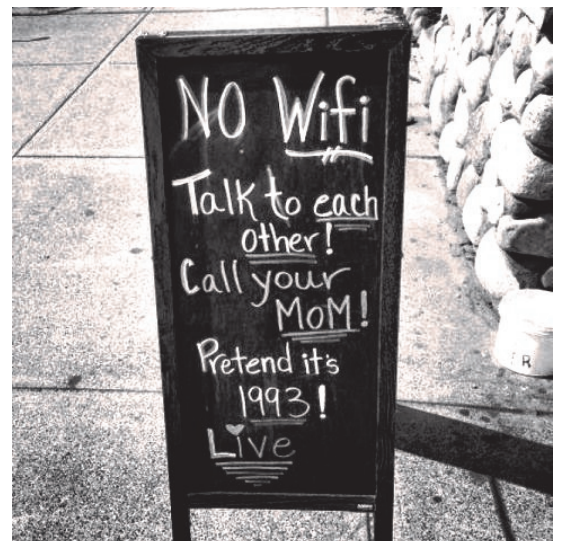 NO Wifi
Talk to each
other!
Call your
MOM!
Pretend it's
1993!
Live
R